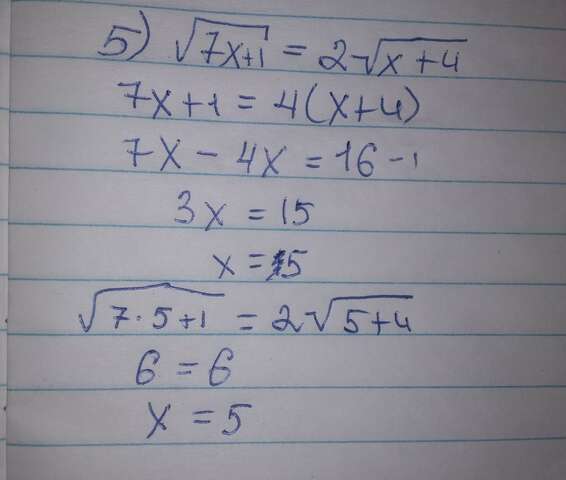 5) √7x+1 = 2√x+4
7x+1 = 4(x+4)
7x - 4x = 16 - 1
3x = 15
x = 5
√7·5+1 = 2√5+4
6 = 6
x = 5